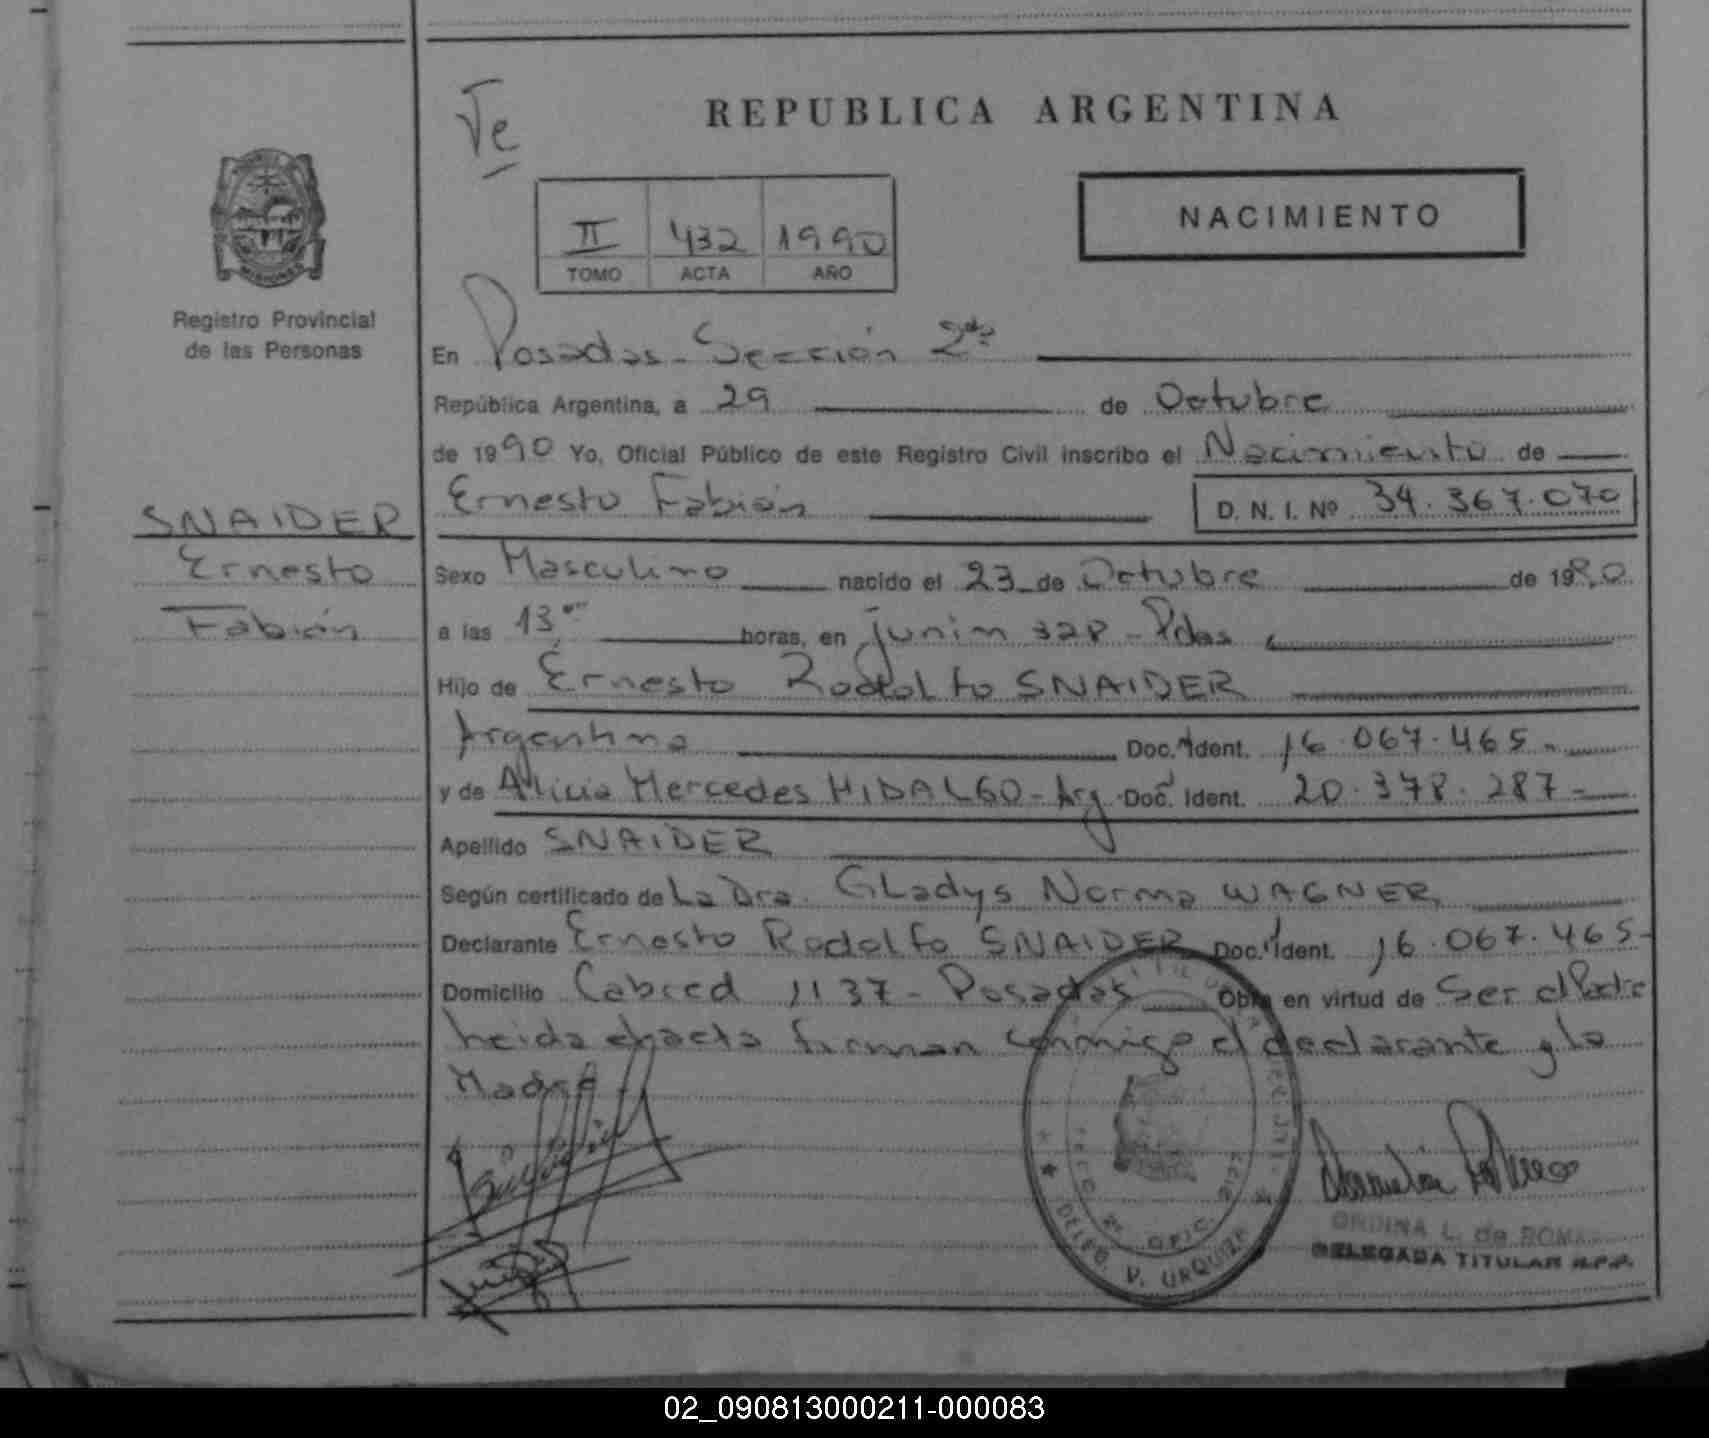 Ve
REPUBLICA ARGENTINA
NACIMIENTO
II 432 1990
TOMO ACTA AÑO
MISIONES
Registro Provincial
de las Personas
En Posadas - Sección 2da
República Argentina, a 29 de Octubre
de 1990 Yo, Oficial Público de este Registro Civil inscribo el Nacimiento de
Ernesto Fabián D. N. I. Nº 34.367.070
SNAIDER
Ernesto
Fabián
Sexo Masculino nacido el 23 de Octubre de 1990
a las 13 horas, en Junin 328 - Pdas
Hijo de Ernesto Rodolfo SNAIDER
Argentino Doc. Ident. 16.067.465-
y de Alicia Mercedes HIDALGO - Arg. Doc. Ident. 20.378.287-
Apellido SNAIDER
Según certificado de La Dra. Gladys Norma WAGNER
Declarante Ernesto Rodolfo SNAIDER Doc. Ident. 16.067.465-
Domicilio Cabred 1137 - Posadas Obra en virtud de Ser el Padre
Leida el acta firman conmigo el declarante y la
Madre
SECC. 2º OFIC. 2127
DELEG. V. URQUIZA
ORDINA L. de ROMA
DELEGADA TITULAR R.P.P.
02_090813000211-000083